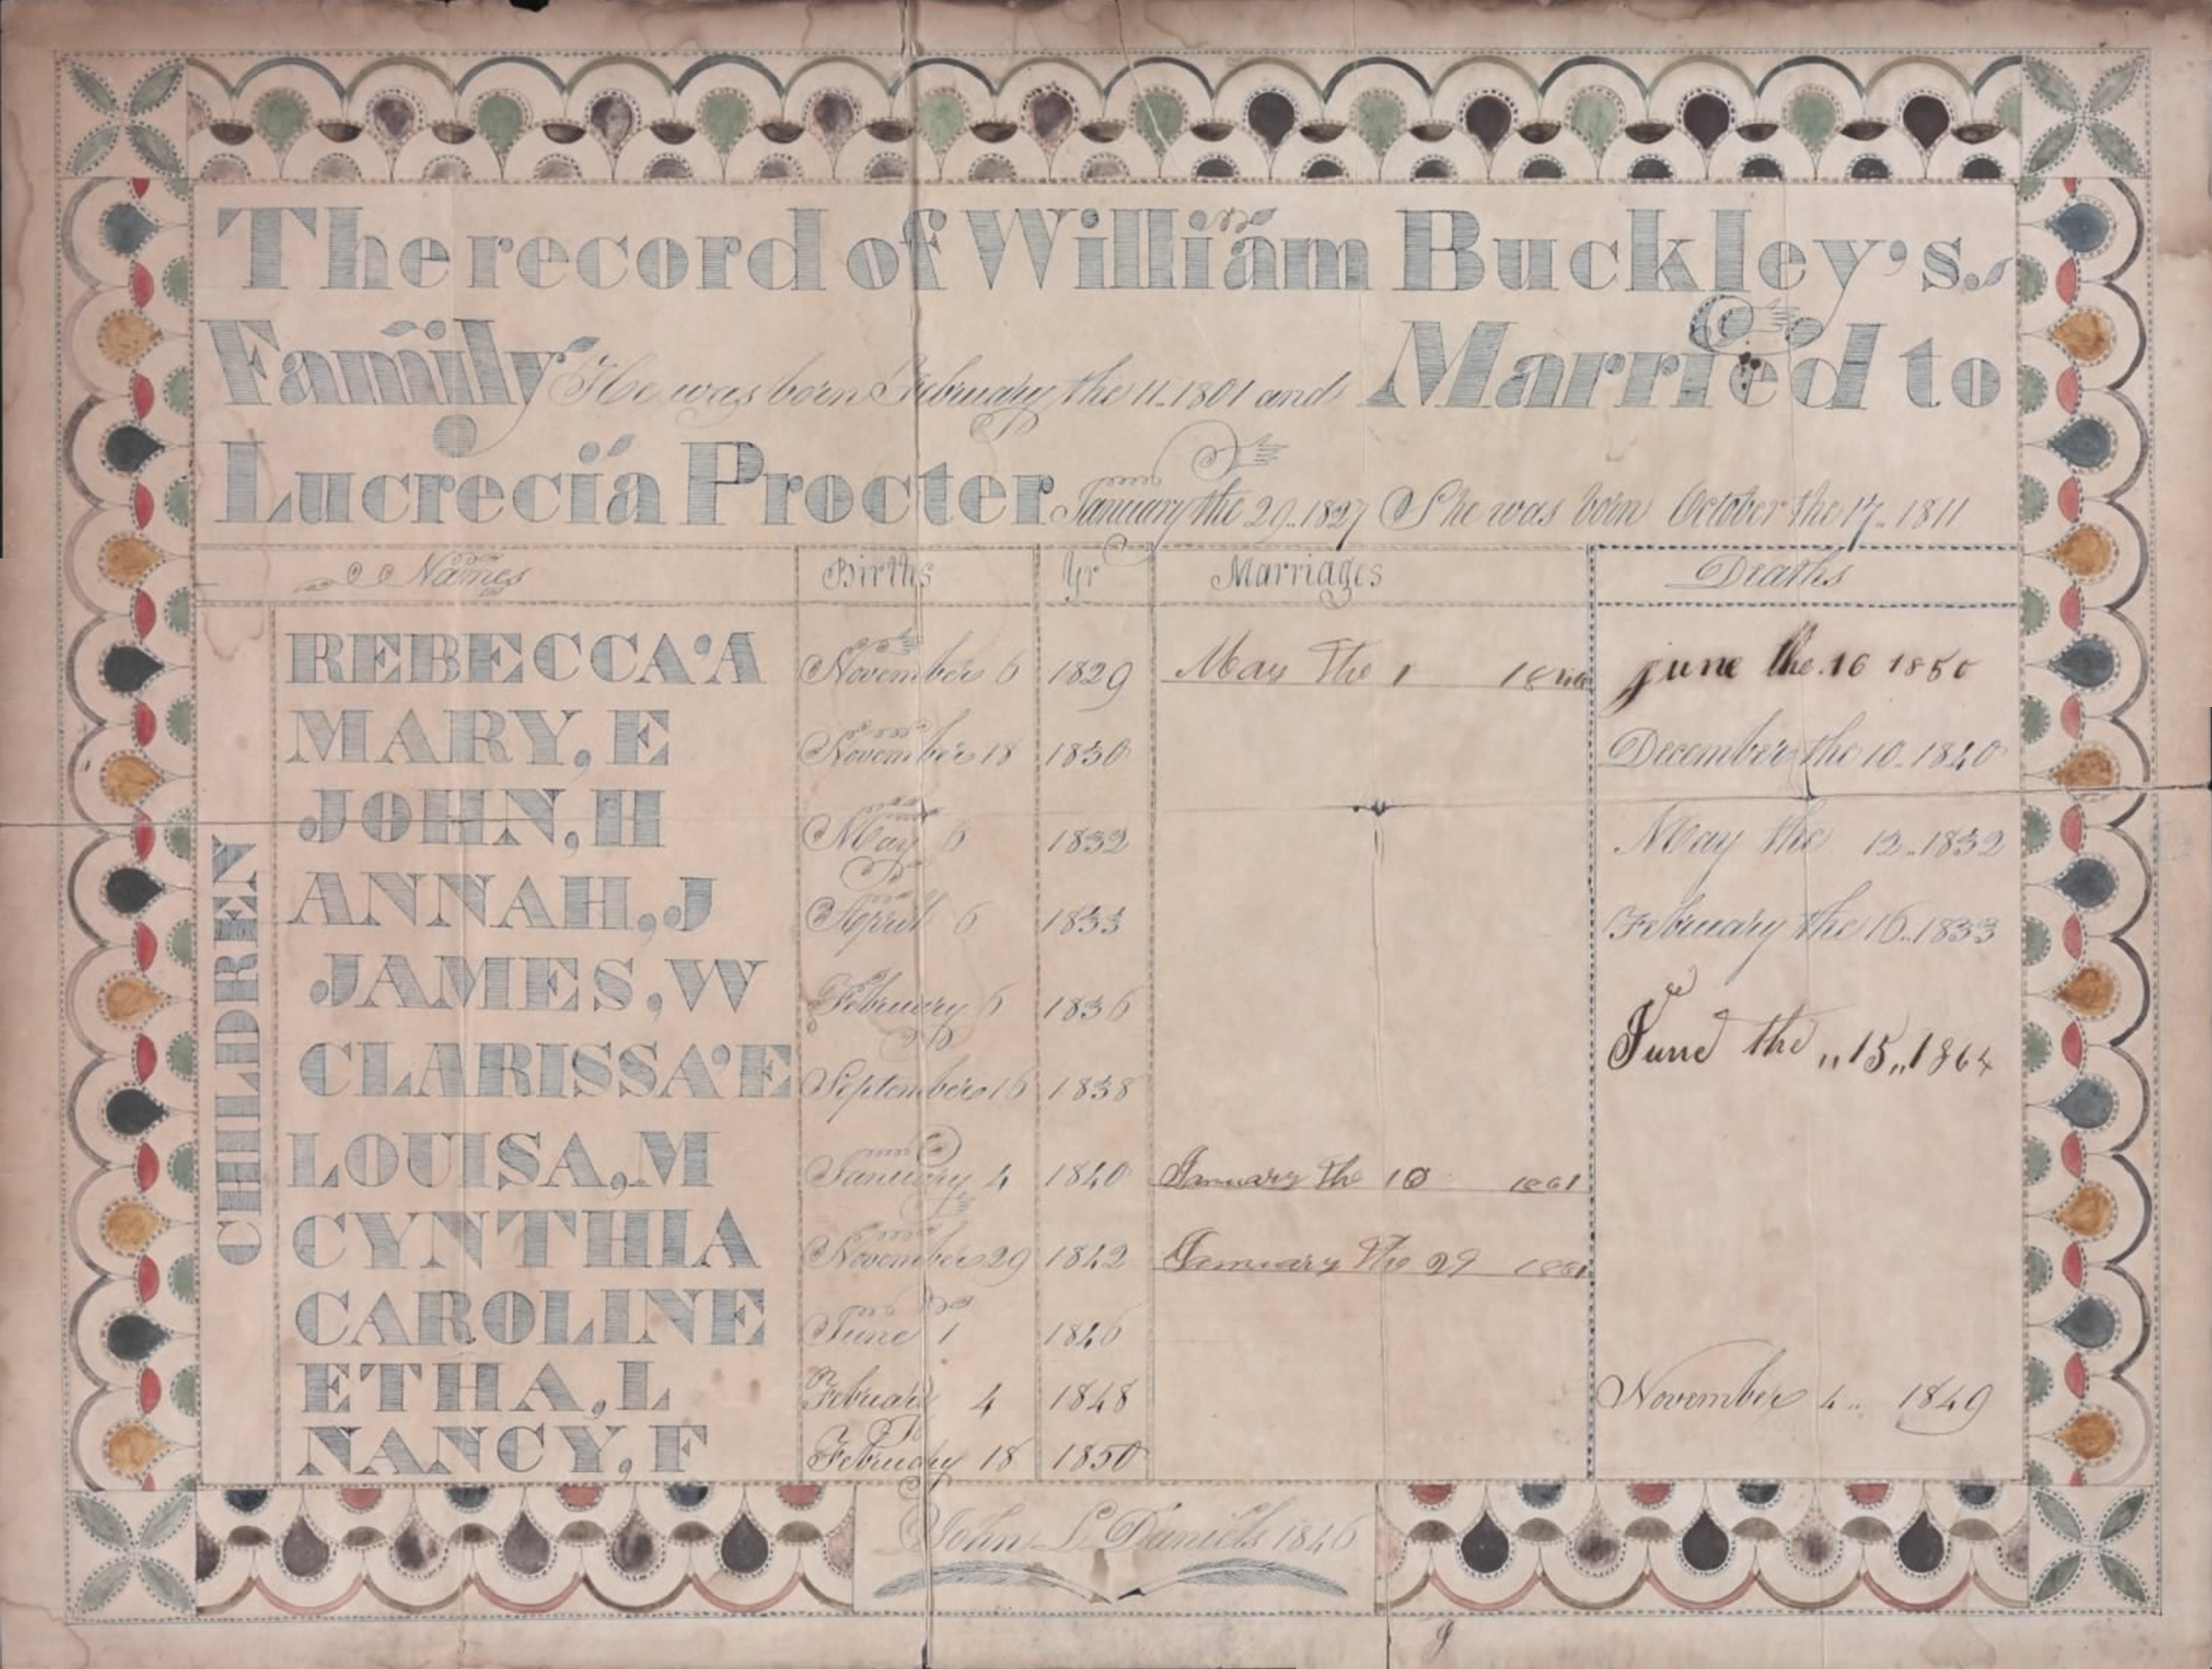 The record of William Buckley's
Family He was born February the 11..1801 and Married to
Lucrecia Procter January the 29..1827 She was born October the 17..1811
Names Births Yr Marriages Deaths
CHILDREN
REBECCA'A November 6 1829 May The 1 June the 16 1850
MARY, E November 18 1830 December the 10..1840
JOHN, H May 6 1832 May the 12..1832
ANNAH, J April 6 1833 February the 16..1833
JAMES, W February 6 1836 June the ,,15,,1864
CLARISSA'E September 16 1838
LOUISA, M January 4 1840 January The 10 1861
CYNTHIA November 29 1842 January The 29 1861
CAROLINE June 1 1846
ETHA, L Februar 4 1848 November 4.. 1849
NANCY, F February 18 1850
John S Daniels 1846